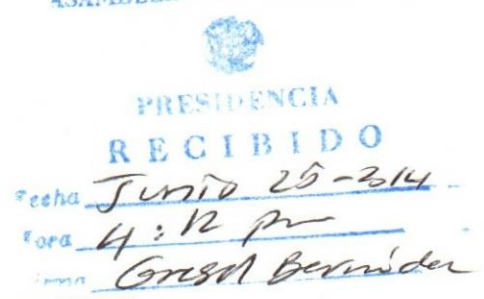 PRESIDENCIA
RECIBIDO
Fecha Junio 25-2014
Hora 4:12 pm
Bermúdez